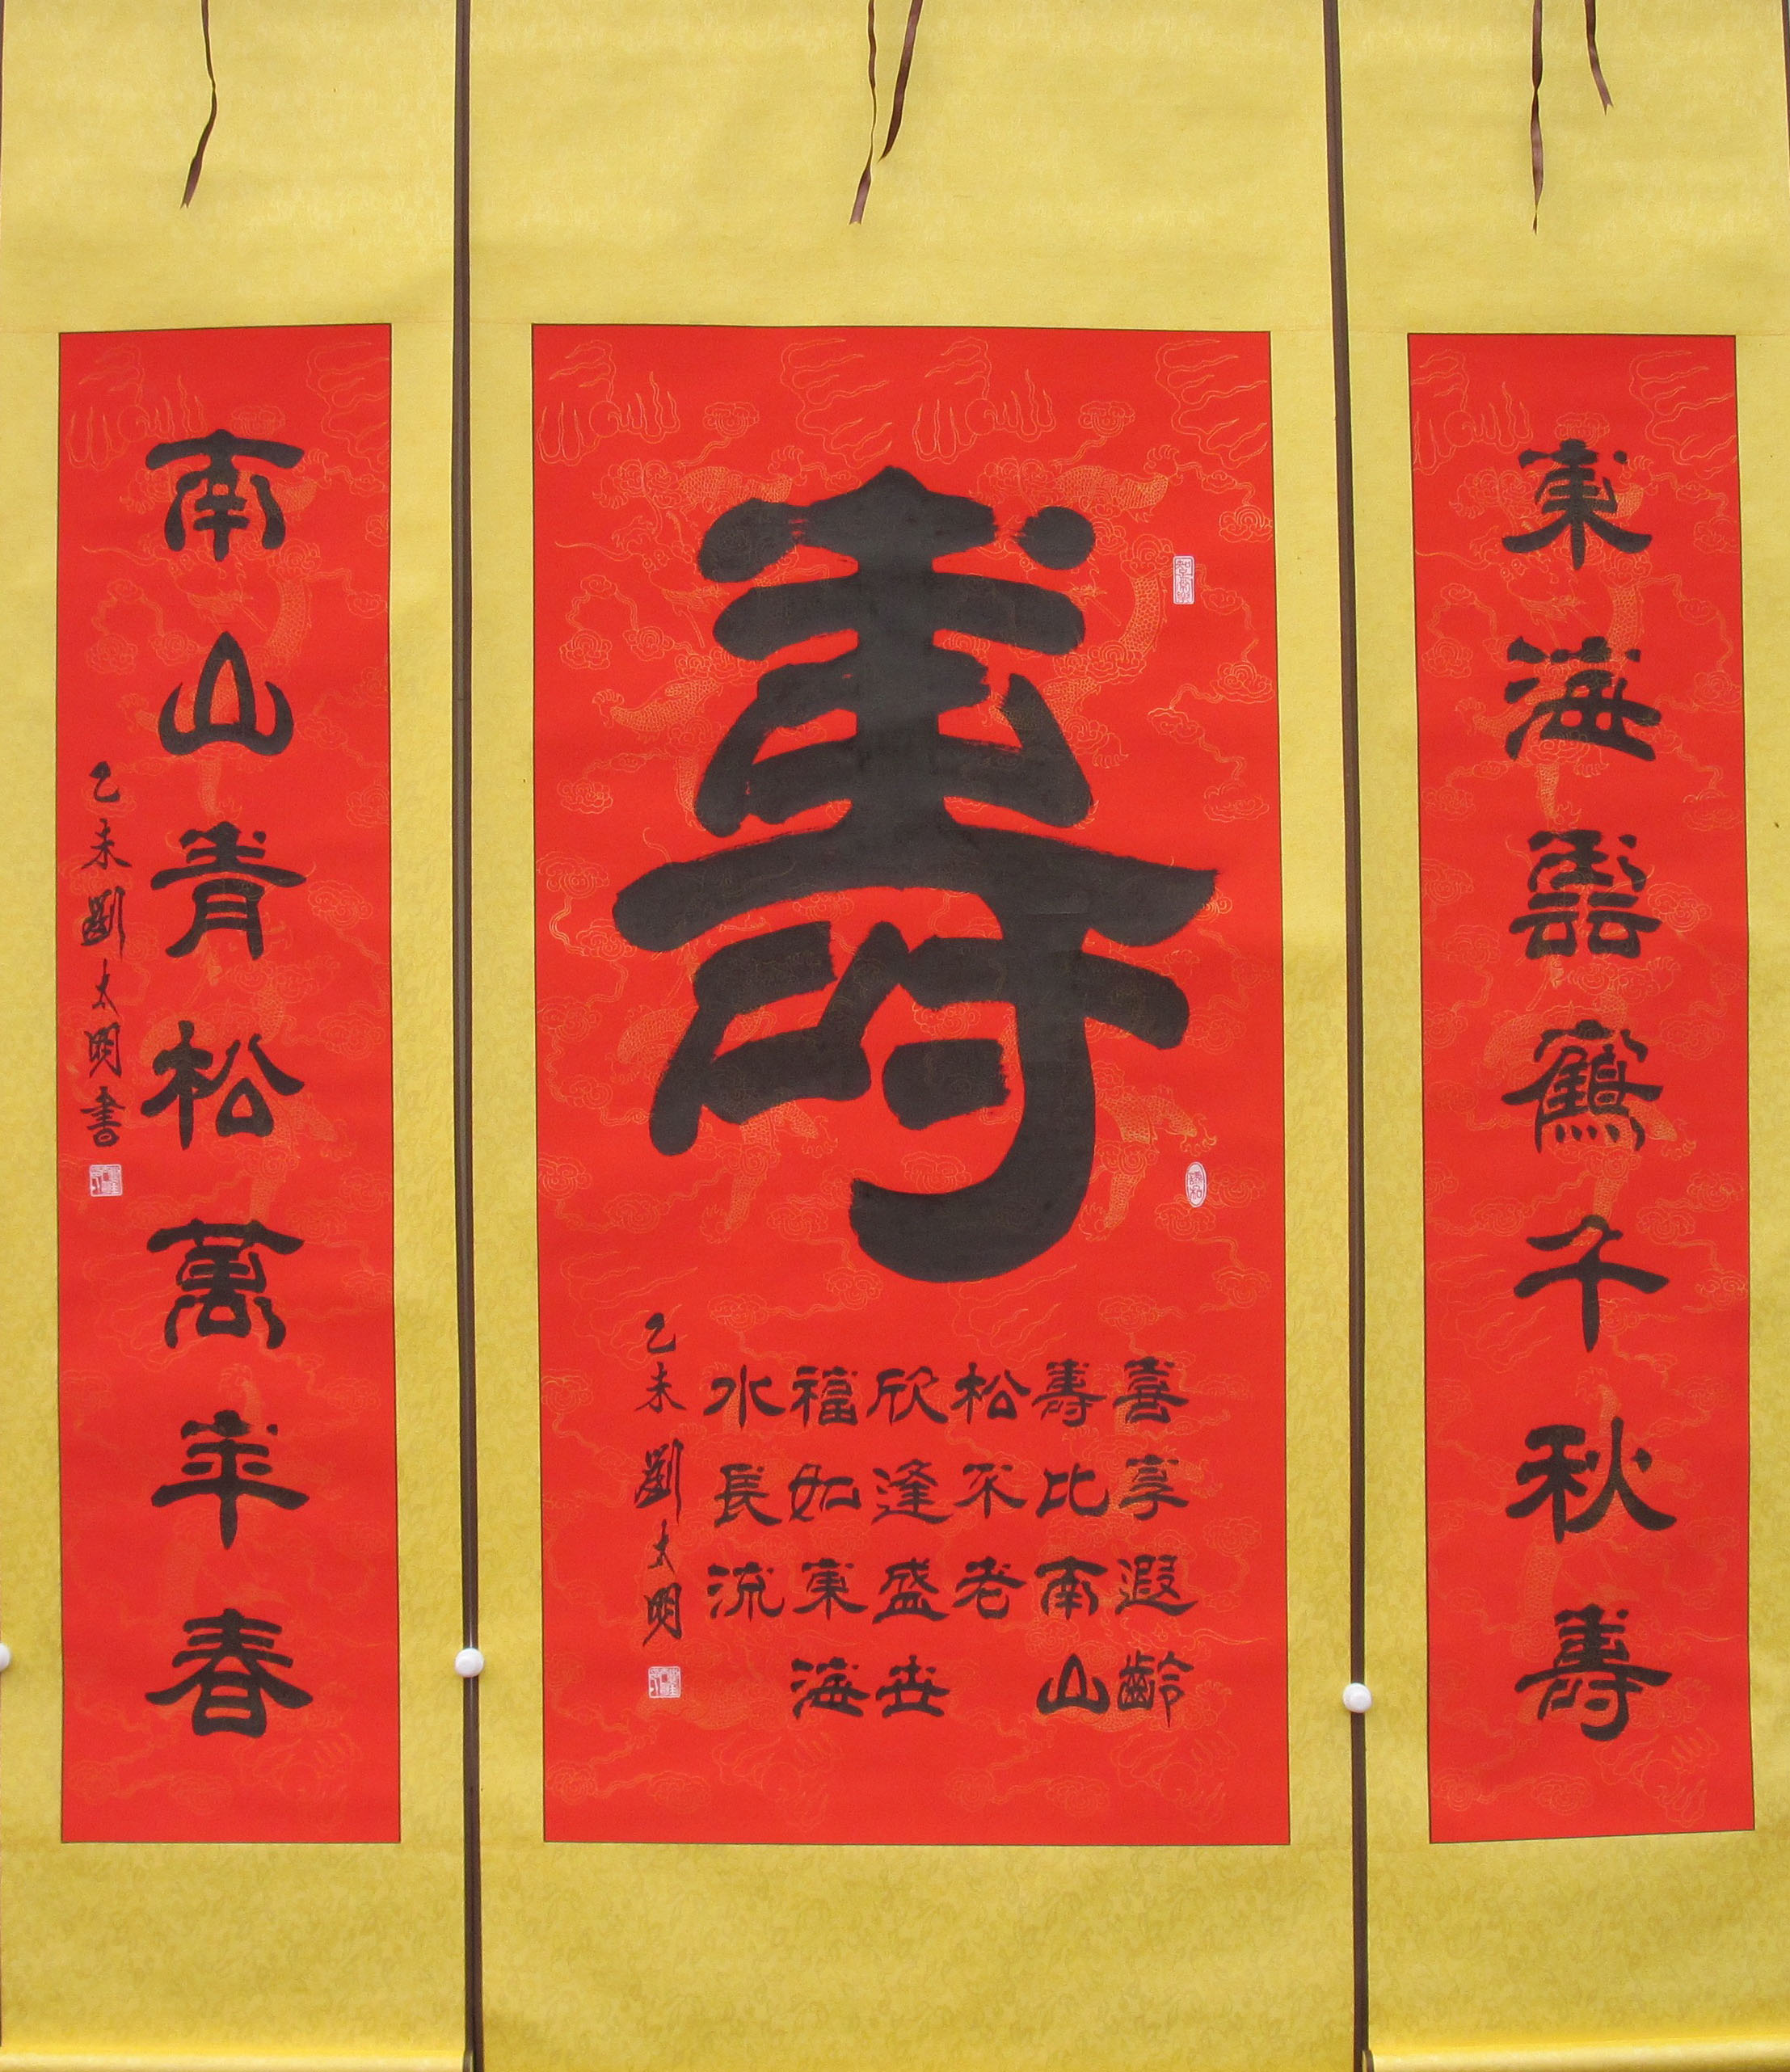 東海靈鶴千秋壽
壽
喜享遐齡
壽比南山
松不老
欣逢盛世
福如東海
水長流
乙未劉太明
南山青松萬年春
乙未劉太明書